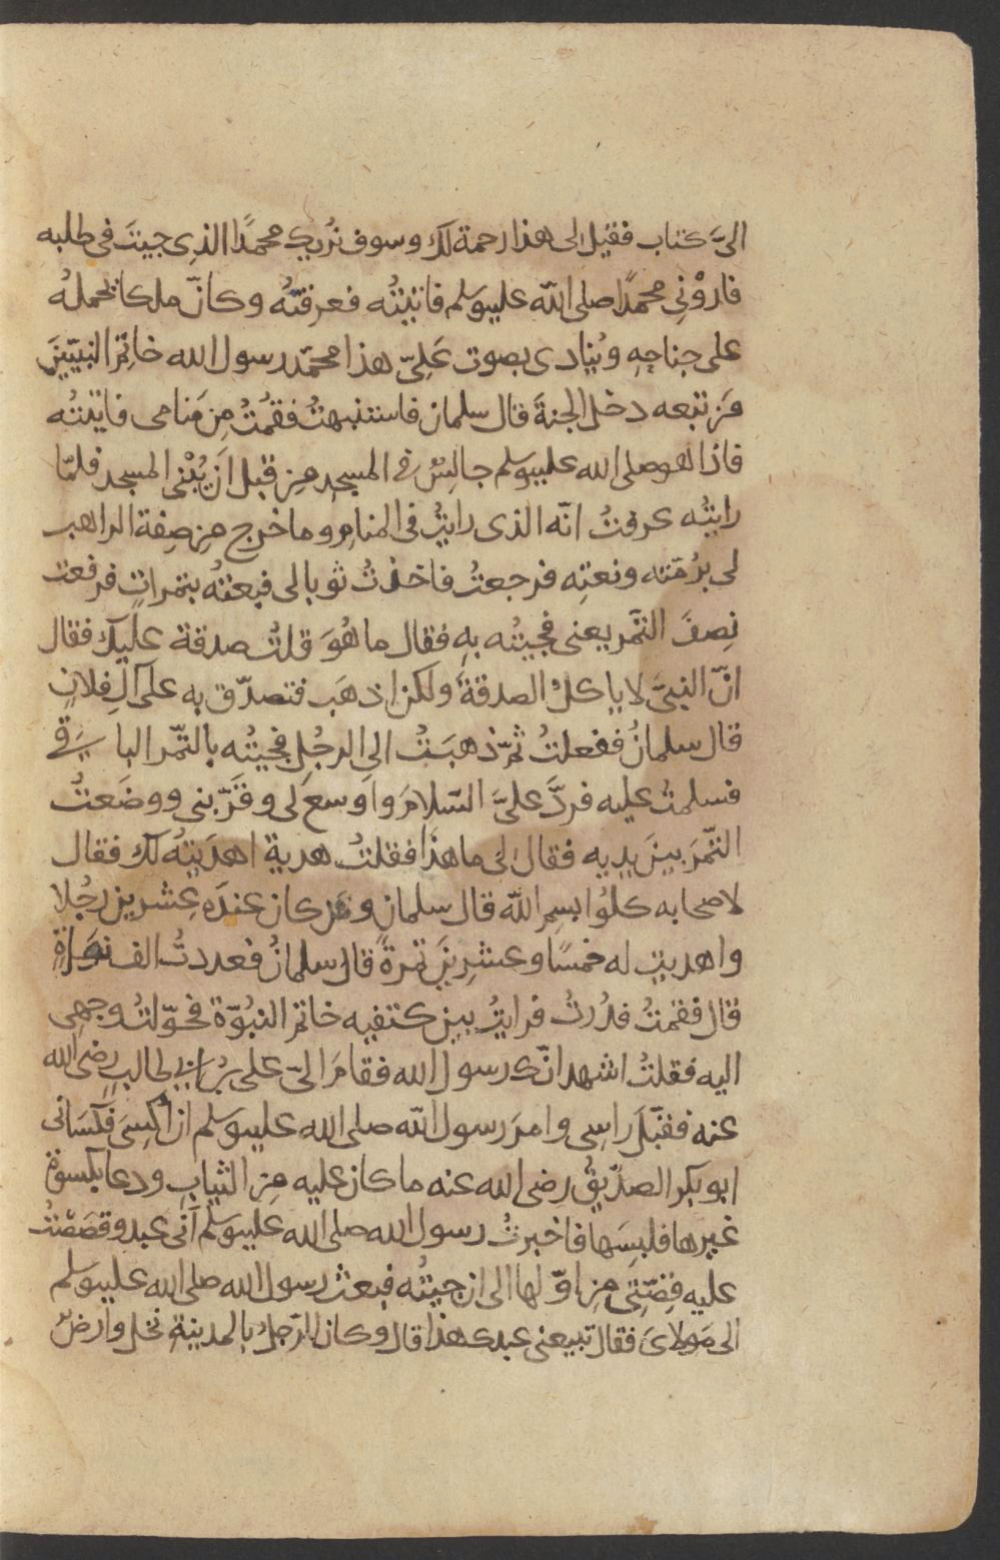 اليَّ كتاب فقيل لى هذا رحمة لك وسوف نُريك محمدًا الذى جيتَ فى طلبه
فاروْنِي محمدًا صلى الله عليه وسلم فاتيتُه فعرفتُه وكانّ ملكا يحمله
على جناحِهِ ويُنادى بصوت عَلِىّ هذا محمّد رسول الله خاتِمُ النبيّينَ
مَن تبعه دخل الجنةَ قال سلمان فاستنبهتُ فقمْتُ مِن مَنامى فاتيتُه
فاذا هو صلى الله عليه وسلم جالِسٌ فى المسجد من قبل اَن يُبْنى المسجد فلمّا
رايتُه عرفتُ انّه الذى رايتُ فى المنامِ وما خرج من صِفة الراهب
لى برُمّته ونعتِه فرجعتُ فاخذتُ ثوبا لى فبعتُه بتمراتٍ فرفعت
نِصفَ التَّمر يعنى فجيتُه بهِ فقال ما هُوَ قلتُ صدقة عليك فقال
انّ النبيَّ لا ياكلُ الصدقةَ ولكن اذهَب فتصدّق به على آلِ فلانٍ
قال سلمانُ ففعلتُ ثمّ ذهبَتُ الى الرجُلِ فجيتُه بالتّمر الباقى
فسلمتُ عليه فردَّ علىَّ السّلامَ واوسعَ لى وقَرّبنى ووضَعتُ
التّمرَ بينَ يديه فقال لى ما هذا فقلتُ هدية اهدَيتُه لك فقال
لاصحابه كلُوا بسمِ الله قال سلمان ومَن كان عندَه عِشرين رجُلا
واهديت له خمسًا وعشرِينَ تمرةً قال سلمانُ فعددتُ الف نواةٍ
قال فقمتُ فدُرتُ فرايتُ بين كتفيه خاتم النبُوّة فحوّلتُ وجهى
اليه فقلتُ اشهد انّك رسول الله فقامَ الىّ على بن ابى طالبٍ رضى الله
عنه فقبّلَ راسِى وامرَ رسول الله صلى الله عليه وسلم ان اُكسِىَ فكسَانى
ابو بكر الصدّيقُ رضى الله عنه ما كان عليه مِن الثيابِ ودعا بكسوة
غيرها فلبِسَها فاخبرتُ رسول الله صلى الله عليه وسلم اَنّى عبد وقصَصْتُ
عليه قِصّتِى مِن اوّلها الى ان جيتُه فبعث رسول الله صلى الله عليه وسلم
الى مَولاىَ فقال تبيعنى عبدك هذا قال وكان للرّجلُ بالمدينة نخل وارضٌ